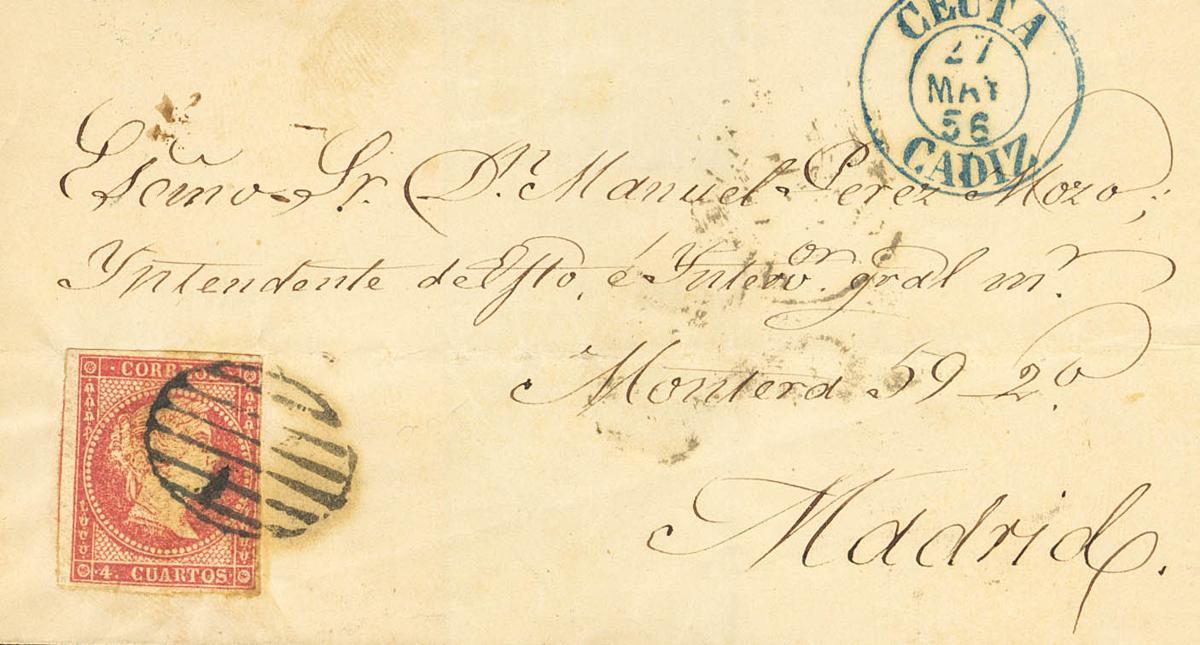 CEUTA
27
MAY
56
CADIZ
Escmo. Sr. Dn. Manuel Perez Mozo;
Yntendente de Efto, é Ynterv.on gral mr.
Montera 59 2º
Madrid.
CORREOS
4 CUARTOS